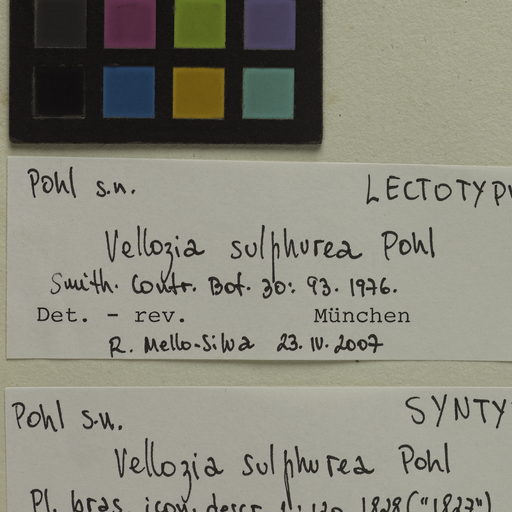 Pohl s.n. LECTOTYP
Vellozia sulphurea Pohl
Smith. Contr. Bot. 30: 93. 1976.
Det. - rev. München
R. Mello-Silva 23.IV.2007
Pohl s.n. SYNTY
Vellozia sulphurea Pohl
Pl. bras. icon. descr. 1: 120 1828 ("1827")